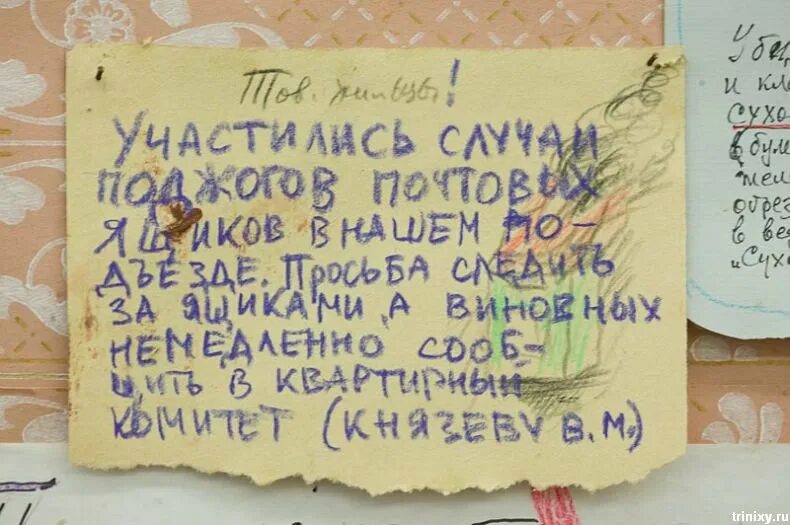 Тов. жильцы!
УЧАСТИЛИСЬ СЛУЧАИ
ПОДЖОГОВ ПОЧТОВЫХ
ЯЩИКОВ В НАШЕМ ПО-
ДЪЕЗДЕ. ПРОСЬБА СЛЕДИТЬ
ЗА ЯЩИКАМИ, А ВИНОВНЫХ
НЕМЕДЛЕННО СООБ-
ЩИТЬ В КВАРТИРНЫЙ
КОМИТЕТ (КНЯЗЕВУ В.М.)
и кл
сухо
в бум
мел
обрез
в ве
"Сух
trinixy.ru